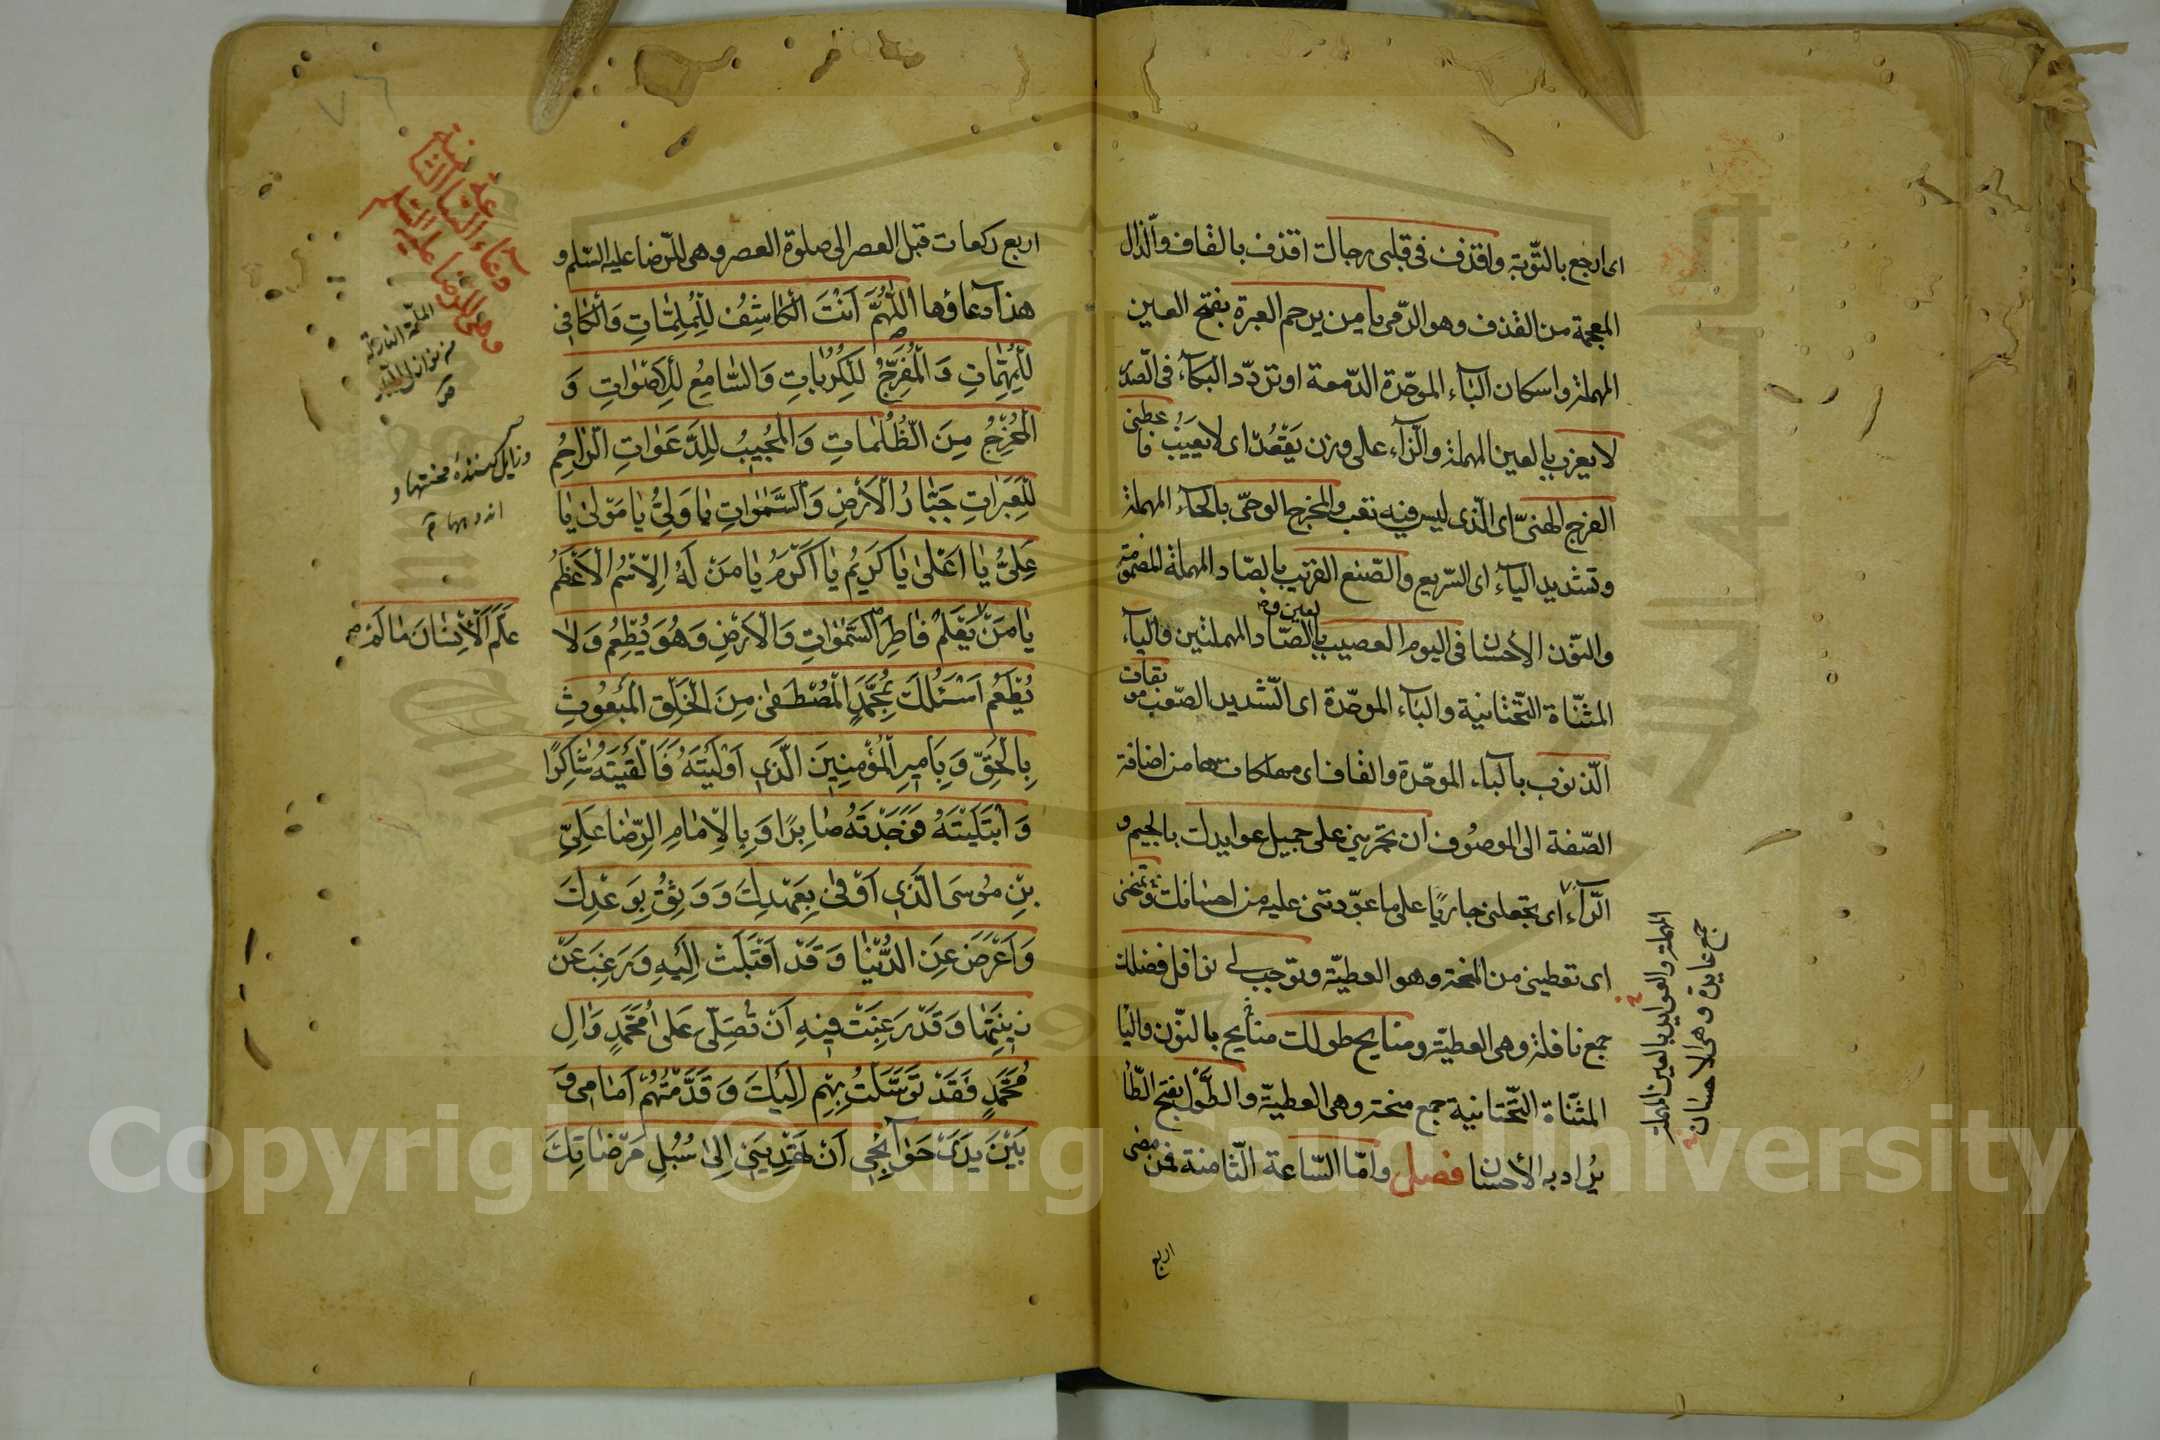 اى ارجع بالتّوبة واقذف فى قلبى رجاك اقذف بالقاف والذّال
المعجمة من القذف وهو الرّمى يا من يرحم العبرة بفتح العين
المهملة واسكان البآء الموحّدة الدّمعة او تردّد البكآء فى الصّدر
لا يعزب بالعين المهملة والزّآء على وزن يقعد اى لا يغيب فاعطنى
الفرج الهنىّ اى الّذى ليس فيه تعب والمخرج الوحىّ بالحآء المهملة
وتشديد اليآء اى السّريع والصّنع القريب بالصّاد المهملة المضمومة
والنّون الأحسان فى اليوم العصيب بالعين والصّاد المهملتين واليآء
المثنّاة التّحتانية والبآء الموحّدة اى الشّديد الصّعب موبقات
الذّنوب بالبآء الموحّدة والقاف اى مهلكاتها من اضافة
الصّفة الى الموصوف ان تجرينى على جميل عوايدك بالجيم و
الرّآء اى تجعلنى جاريًا على ما عوّدتنى عليه من احسانك وتمنحنى
اى تعطينى من المنحة وهو العطيّة وتوجب لى نوافل فضلك
جمع نافلة وهى العطيّة ومنايح طولك منايح بالنّون واليا
المثنّاة التّحتانية جمع منحة وهى العطيّة والطّول بفتح الطّا
يراد به الأحسان فصل وامّا السّاعة الثّامنة فمن مضى
اربع
المهملة والعوايد بالعين المهملة
جمع عايدة وهى الاحسان
اربع ركعات قبل العصر الى صلوة العصر وهى للرّضا عليه السّلم و
هذا دعاؤها اَللّهُمَّ اَنْتَ الْكاشِفُ لِلْمُلِمّاتِ وَالْكافى
لِلْمُهِمّاتِ وَالْمُفَرِّجُ لِلْكُرُباتِ وَالسّامِعُ لِلْأَصْواتِ وَ
الْمُخْرِجُ مِنَ الظُّلُماتِ وَالْمُجيبُ لِلدَّعَواتِ الرّاحِمُ
لِلْعَبَراتِ جَبّارُ الْأَرْضِ وَالسَّمٰواتِ يا وَلِىُّ يا مَوْلىٰ يا
عَلِىُّ يا اَعْلىٰ يا كَريمُ يا اَكْرَمُ يا مَنْ لَهُ الْاِسْمُ الْأَعْظَمُ
يا مَنْ عَلَّمَ الْأِنْسانَ ما لَمْ
يَعْلَمْ فاطِرَ السَّمٰواتِ وَالْأَرْضِ وَهُوَ يُطْعِمُ وَلا
يُطْعَمُ اَسْئَلُكَ بِمُحَمَّدٍ الْمُصْطَفىٰ مِنَ الْخَلْقِ الْمَبْعُوثِ
بِالْحَقِّ وَبِاَميرِ الْمُؤْمِنينَ الَّذى اَوْلَيْتَهُ فَاَلْفَيْتَهُ شاكِرًا
وَابْتَلَيْتَهُ فَوَجَدْتَهُ صابِرًا وَبِالْاِمامِ الرِّضا عَلِىِّ
بْنِ مُوسَى الَّذى اَوْفىٰ بِعَهْدِكَ وَوَثِقَ بِوَعْدِكَ
وَاَعْرَضَ عَنِ الدُّنْيا وَقَدْ اَقْبَلَتْ اِلَيْهِ وَرَغِبَ عَنْ
زينَتِها وَقَدْ رَغِبَتْ فيهِ اَنْ تُصَلِّىَ عَلىٰ مُحَمَّدٍ وَاٰلِ
مُحَمَّدٍ فَقَدْ تَوَسَّلْتُ بِهِمْ اِلَيْكَ وَقَدَّمْتُهُمْ اَمامى وَ
بَيْنَ يَدَىْ حَوائِجى اَنْ تَهْدِيَنى اِلىٰ سُبُلِ مَرْضاتِكَ
دعاء السّاعة الثّامنة
وهى للرّضا عليه السّلم
الملمّة النازلة
من نوازل الدّهر
وزايل كننده محنتها و
اندوهها